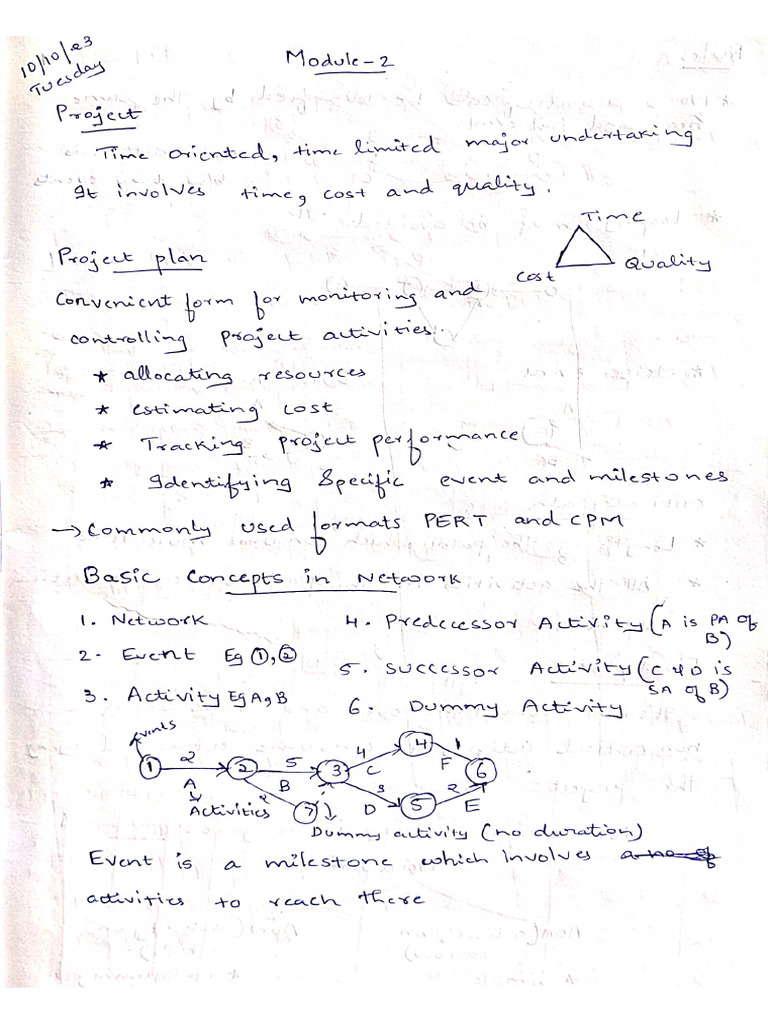 10/10/23
Tuesday
Module-2
Project
Time oriented, time limited major undertaking
It involves time, cost and quality.
Time
Cost
Quality
Project plan
Convenient form for monitoring and
controlling project activities.
* allocating resources
* estimating cost
* Tracking project performance
* Identifying Specific event and milestones
→ Commonly used formats PERT and CPM
Basic Concepts in Network
1. Network
2. Event Eg ①, ②
3. Activity Eg A, B
4. Predecessor Activity (A is PA of
B)
5. Successor Activity (C & D is
SA of B)
6. Dummy Activity
Events
1 2 2 5 3 4 4 1 6
A B C F
Activities 2 7 D 3 5 2 E
Dummy activity (no duration)
Event is a milestone which Involves
activities to reach there